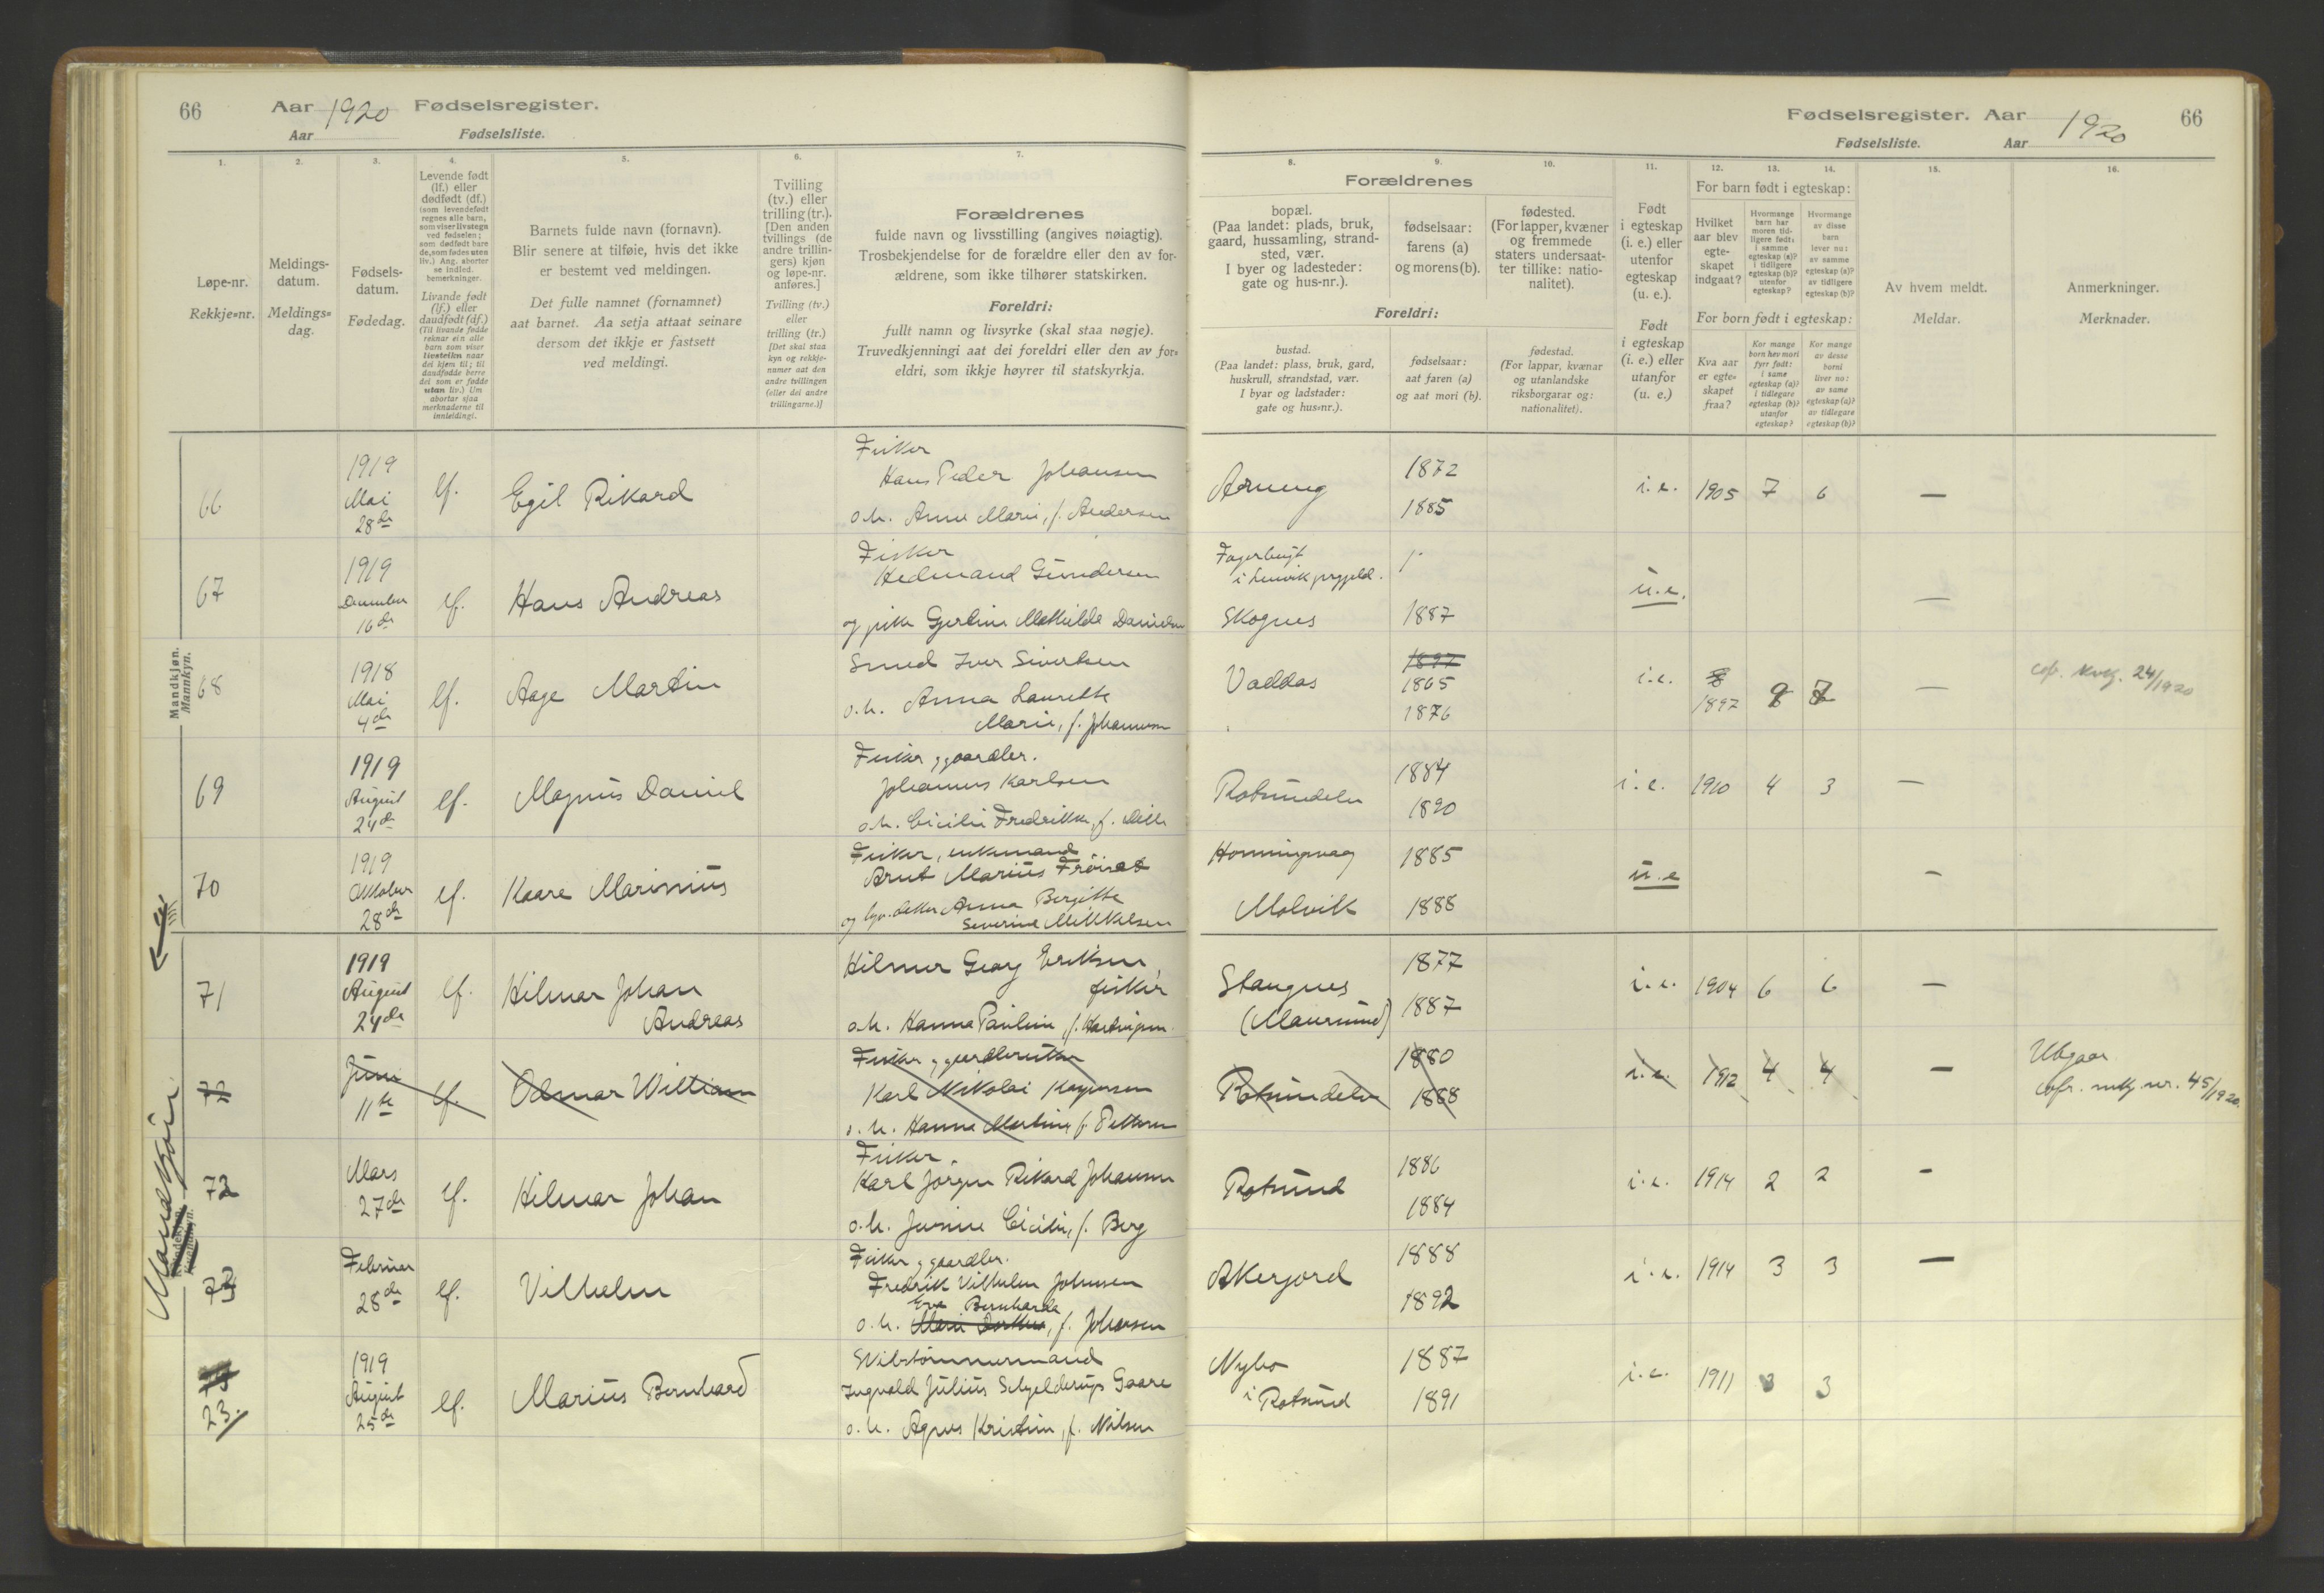 66 Aar 1920 Fødselsregister.
Aar Fødselsliste.
1. 2. 3. 4. 5. 6. 7.
Løpe-nr.
Rekkje-nr.
Meldings-
datum.
Meldings-
dag.
Fødsels-
datum.
Fødedag.
Levende født
(lf.) eller
dødfødt (df.)
(som levendefødt
regnes alle barn,
som viser livstegn
ved fødselen;
som dødfødt bare
de, som fødes uten
liv.) Ang. aborter
se indled.
bemerkninger.
Livande født
(lf.) eller
daudfødt (df.)
(Til livande fødde
reknar ein alle
barn som viser
livsteikn naar
dei kjem til; til
daudfødde berre
dei som er fødde
utan liv.) Um
abortar sjaa
merknaderne til
innleidingi.
Barnets fulde navn (fornavn).
Blir senere at tilføie, hvis det ikke
er bestemt ved meldingen.
Det fulle namnet (fornamnet)
aat barnet. Aa setja attaat seinare
dersom det ikkje er fastsett
ved meldingi.
Tvilling
(tv.) eller
trilling (tr.).
[Den anden
tvillings (de
andre trillin-
gers) kjøn
og løpe-nr.
anføres.]
Tvilling (tv.)
eller
trilling (tr.)
[Det skal staa
kyn og rekkje-
numer aat den
andre tvillingen
(eller dei andre
trillingarne.)]
Forældrenes
fulde navn og livsstilling (angives nøiagtig).
Trosbekjendelse for de forældre eller den av for-
ældrene, som ikke tilhører statskirken.
Foreldri:
fullt namn og livsyrke (skal staa nøgje).
Truvedkjenningi aat dei foreldri eller den av for-
eldri, som ikkje høyrer til statskyrkja.
Fødselsregister. Aar 1920 66
Fødselsliste. Aar
8. 9. 10. 11. 12. 13. 14. 15. 16.
Forældrenes
bopæl.
(Paa landet: plads, bruk,
gaard, hussamling, strand-
sted, vær.
I byer og ladesteder:
gate og hus-nr.).
fødselsaar:
farens (a)
og morens (b).
fødested.
(For lapper, kvæner
og fremmede
staters undersaat-
ter tillike: natio-
nalitet).
Foreldri:
bustad.
(Paa landet: plass, bruk, gard,
huskrull, strandstad, vær.
I byar og ladstader:
gate og hus-nr.).
fødselsaar:
aat faren (a)
og aat mori (b).
fødestad.
(For lappar, kvænar
og utanlandske
riksborgarar og:
nationalitet).
Født
i egteskap
(i. e.) eller
utenfor
egteskap
(u. e.).
Født
i egteskap
(i. e.) eller
utanfor
(u. e.)
For barn født i egteskap:
Hvilket
aar blev
egte-
skapet
indgaat?
Hvormange
barn har
moren tid-
ligere født:
i samme
egteskap (a)?
i tidligere
egteskap (b)?
utenfor
egteskap?
Hvormange
av disse
barn
lever nu:
av samme
egteskap (a)?
av tidligere
egteskap (b)?
For born født i egteskap:
Kva aar
er egte-
skapet
fraa?
Kor mange
born hev mori
fyrr født:
i same
egteskap (a)?
i tidlegare
egteskap (b)?
utanfor
egteskap?
Kor mange
av desse
borni
liver no:
av same
egteskap (a)?
av tidlegare
egteskap (b)?
Av hvem meldt.
Meldar.
Anmerkninger.
Merknader.
Mandkjøn.
Mannkyn.
Fisker
66 1919 Mai 28de lf. Egil Rikard Hans Peder Johansen 1872 i.e. 1905 7 6 —
o.h. Anne Marie, f. Andersen 1885
Fisker Fagerbugt
67 1919 Desember 16de lf. Hans Andreas Hedmand Gundersen u.e. —
Gjertine Mathilde Danielsen Skognes 1887
68 1918 Mai 4de lf. Aage Martin Smed Iver Sivertsen Vaddas 1897 1865 i.e. 8 1897 8 7 —
24/1920
o.h. Anna Laurette 1876
Marie, f. Johannesen
Fisker, gaardbr.
69 1919 August 24de lf. Magnus Daniel Johannes Karlsen Rotsundelv 1884 i.e. 1910 4 3 —
o.h. Cicilie Fredrikke, f. 1890
Fisker, enkemand
70 1919 Oktober 28de lf. Kaare Marinius Marius Honningsvaag 1885 u.e —
Anna Bergitte
Severine Mikkelsen 1888
Mandkjøn.
71 1919 August 24de lf. Hilmar Johan Hilmer Georg Eriksen Stangnes 1877 i.e. 1904 6 6 —
Andreas fisker (Maursund) 1887
o.h. Hanna Pauline, f.
72 Juni 11te lf. Odmar William Rotsundelv 1880 i.e. 1912 4 4 — Utgaar
Karl Nikolai 1888 45/1920.
o.h. Hanna f. Pettersen
Fisker
72 Mars 27de lf. Hilmar Johan Karl Jörgen Rikard Johansen Rotsund 1886 i.e. 1914 2 2 -
o.h. Cicilie, f. Berg 1884
Fisker, gaardbr.
73 Februar 28de lf. Vilhelm Fredrik Vilhelm Johnsen 1888 i.e. 1914 3 3 —
Eva Bernharda
o.h. f. Johansen 1892
Skibstømmermand
23. 1919 August 25de lf. Marius Bernhard Ingvald Julius Schjelderup Gaare Nybo i Rotsund 1887 i.e. 1911 3 3
o.h. Agnes Kristine, f. Nilsen 1891